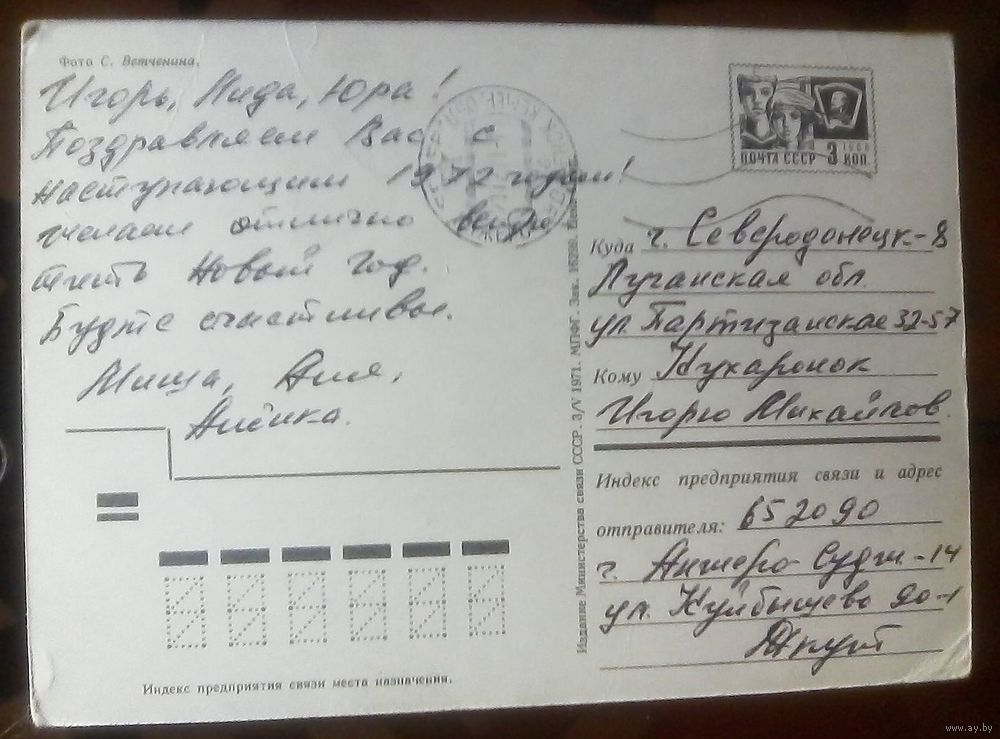 Фото С. Ветченина.
Игорь, Лида, Юра!
Поздравляем Вас с
наступающим 1972 годом!
желаем отлично встре
тить Новый Год.
Будте счастливы.
Миша, Аня,
Анёчка.
ПОЧТА СССР 3 КОП.
1966
Куда г. Северодонецк-8
Луганская обл.
ул. Партизанская 32-57
Кому Кухаронок
Игорю Михайлов.
Индекс предприятия связи и адрес
отправителя: 652090
г. Анжеро-Судж-14
ул. Куйбышева 90-1
Издание Министерства связи СССР. 3/V 1971. МПФГ. Зак.
Индекс предприятия связи места назначения.
www.ay.by